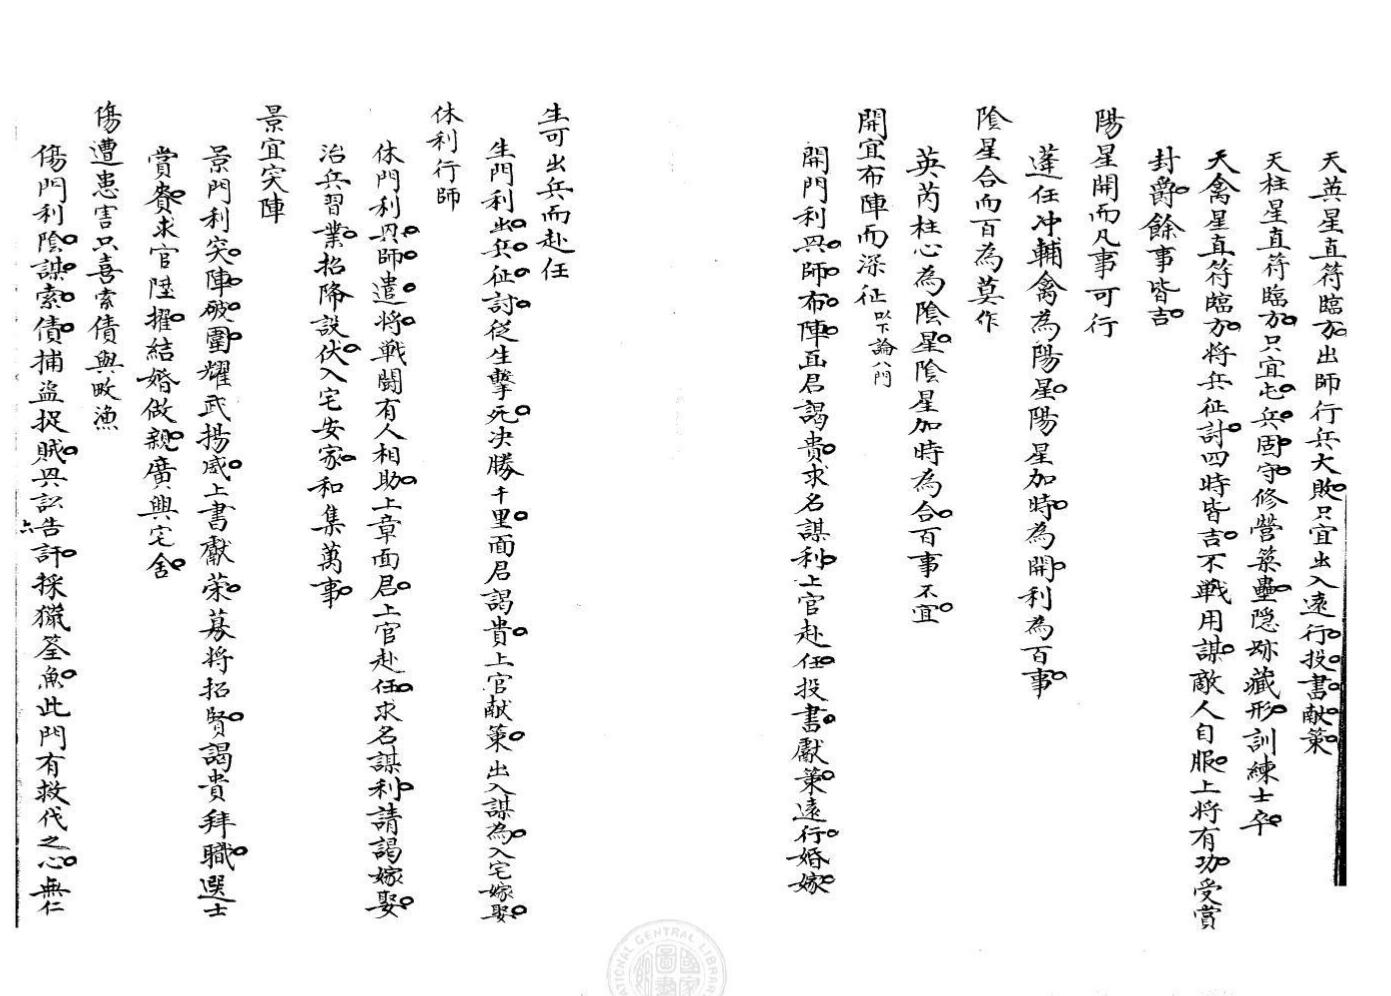 天英星直符臨方出師行兵大敗只宜出入遠行投書献策
天柱星直符臨方只宜屯兵固守修營築壘隐跡藏形訓練士卒
天禽星直符臨方将兵征討四時皆吉不戦用謀敵人自服上将有功受賞
封爵餘事皆吉
陽星開而凡事可行
蓬任冲輔禽為陽星陽星加時為開利為百事
陰星合而百為莫作
英芮柱心為陰星陰星加時為合百事不宜
開宜布陣而深征以下論八門
開門利興師布陣面君謁貴求名謀利上官赴任投書獻策遠行婚嫁
生可出兵而赴任
生門利出兵征討従生擊死决勝千里面君謁貴上官献策出入謀為入宅嫁娶
休利行師
休門利興師遣将戦闘有人相助上章面君上官赴任求名謀利請謁嫁娶
治兵習業招降設伏入宅安家和集萬事
景宜突陣
景門利突陣破圍耀武揚威上書獻策募将招賢謁貴拜職選士
賞賚求官陞擢結婚做親廣興宅舍
傷遭患害只喜索債與畋漁
傷門利陰謀索債捕盗捉賊興訟告訐採獵筌魚此門有救代之心無仁
六
國家圖書館
NATIONAL CENTRAL LIBRARY